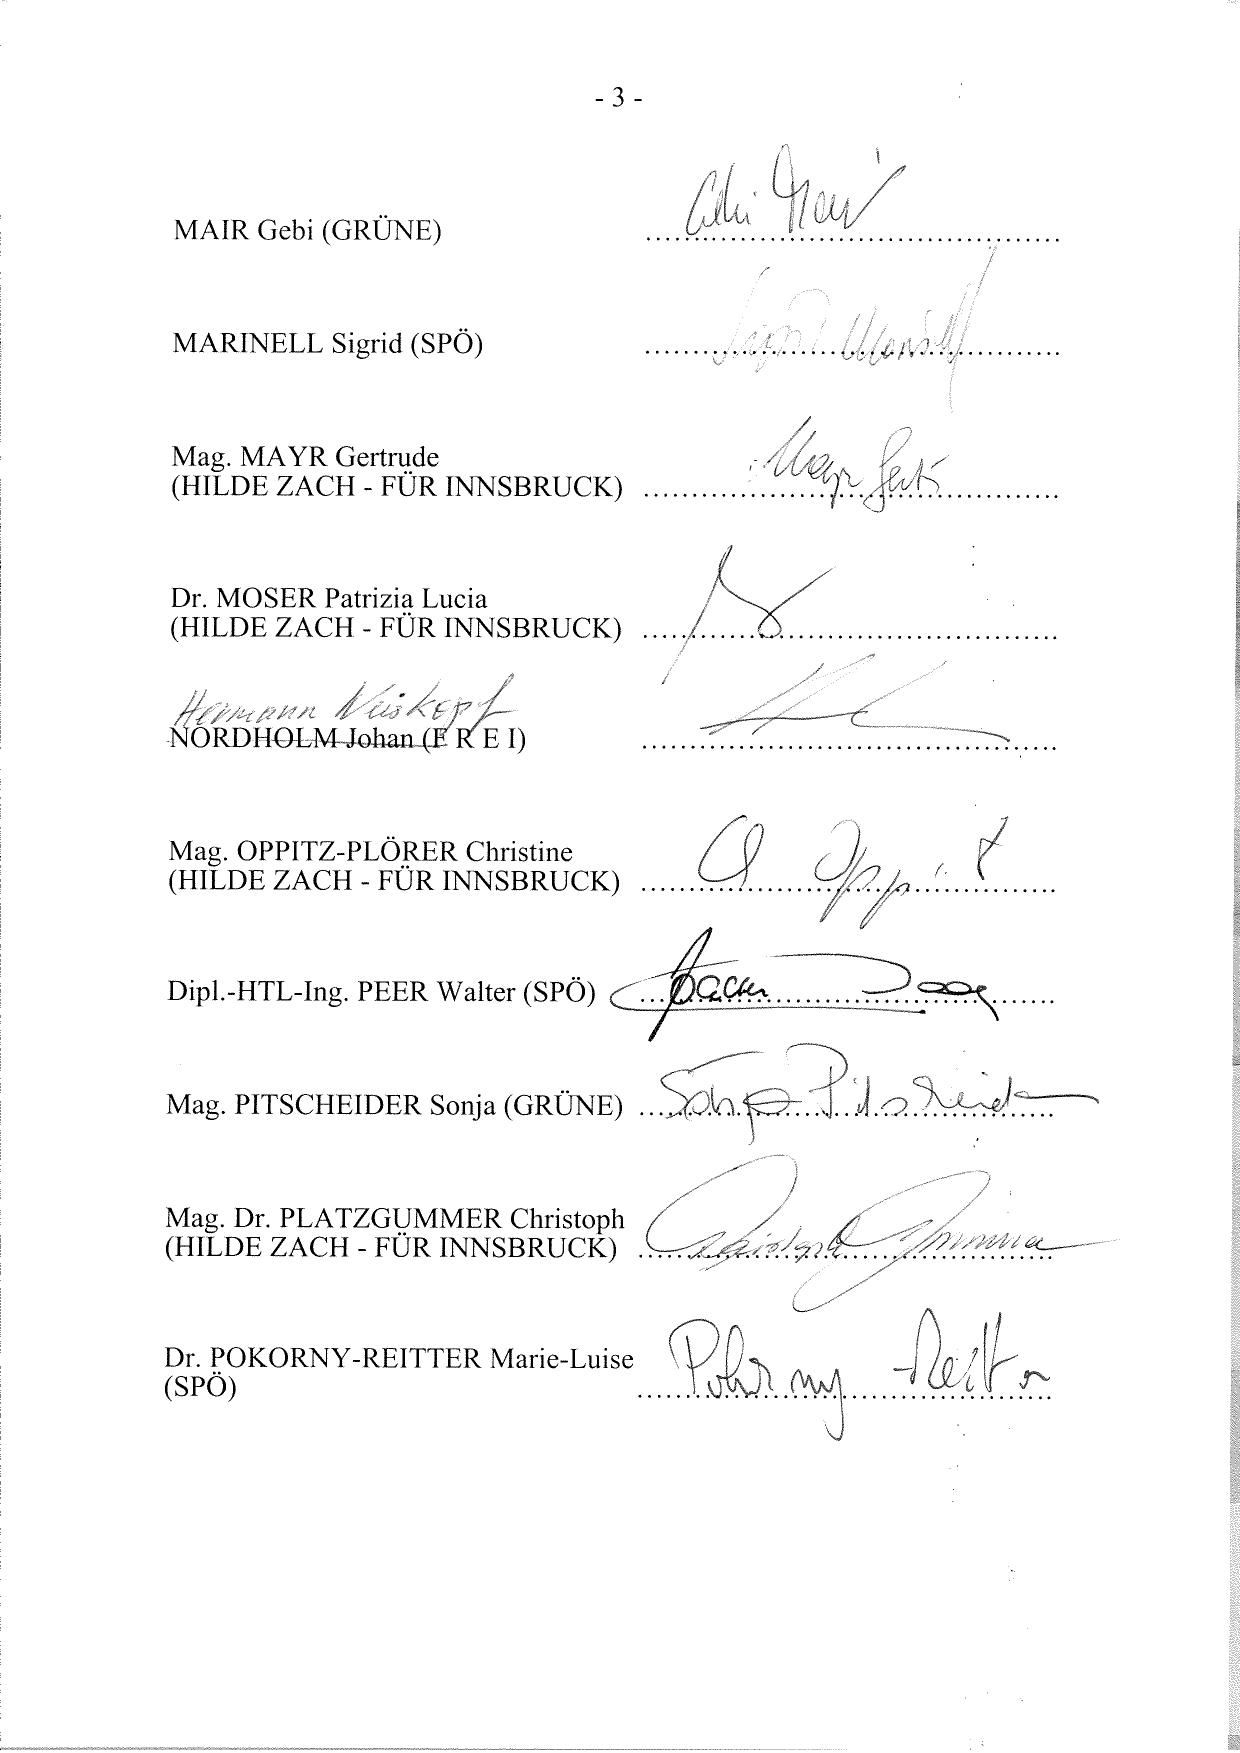 - 3 -
MAIR Gebi (GRÜNE) ........................................ Gebi Mair
MARINELL Sigrid (SPÖ) ........................................ Sigrid Marinell
Mag. MAYR Gertrude
(HILDE ZACH - FÜR INNSBRUCK) ........................................ Mayr Gert
Dr. MOSER Patrizia Lucia
(HILDE ZACH - FÜR INNSBRUCK) ........................................
Hermann Weiskopf
NORDHOLM Johan (F R E I) ........................................
Mag. OPPITZ-PLÖRER Christine
(HILDE ZACH - FÜR INNSBRUCK) ........................................
Dipl.-HTL-Ing. PEER Walter (SPÖ) ........................................
Mag. PITSCHEIDER Sonja (GRÜNE) ........................................ Sonja Pitscheider
Mag. Dr. PLATZGUMMER Christoph
(HILDE ZACH - FÜR INNSBRUCK) ........................................
Dr. POKORNY-REITTER Marie-Luise
(SPÖ) ........................................ Pokorny-Reitter